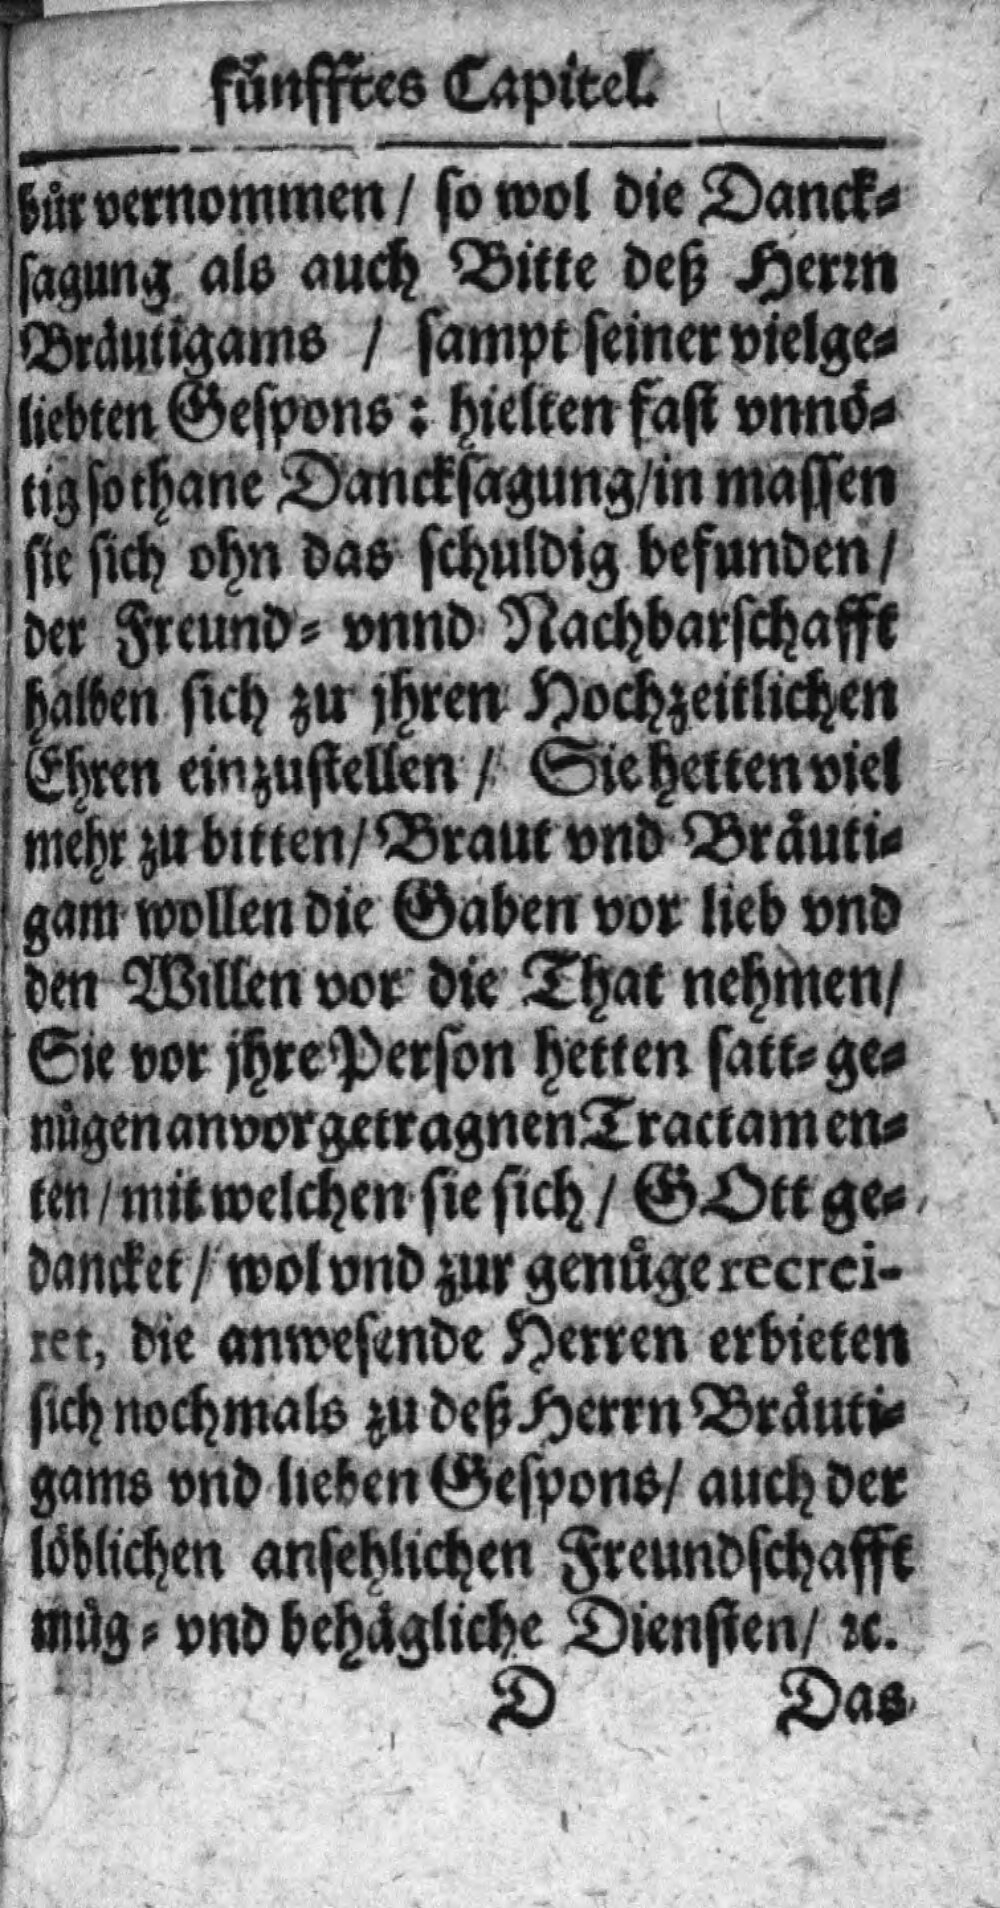 fůnfftes Capitel.
bůr vernommen / so wol die Danck-
sagung als auch Bitte deß Herrn
Bräutigams / sampt seiner vielge-
liebten Gespons : hielten fast vnnö-
tig so thane Dancksagung / in massen
sie sich ohn das schuldig befunden /
der Freund- vnnd Nachbarschafft
halben sich zu jhren Hochzeitlichen
Ehren einzustellen / Sie hetten viel
mehr zu bitten / Braut vnd Bräuti-
gam wollen die Gaben vor lieb vnd
den Willen vor die That nehmen /
Sie vor jhre Person hetten satt-ge-
nůgen an vorgetragnen Tractamen-
ten / mit welchen sie sich / GOtt ge-
dancket / wol vnd zur genůge recrei-
ret, die anwesende Herren erbieten
sich nochmals zu deß Herrn Bräuti-
gams vnd lieben Gespons / auch der
löblichen ansehlichen Freundschafft
můg- vnd behägliche Diensten / ꝛc.
D Das